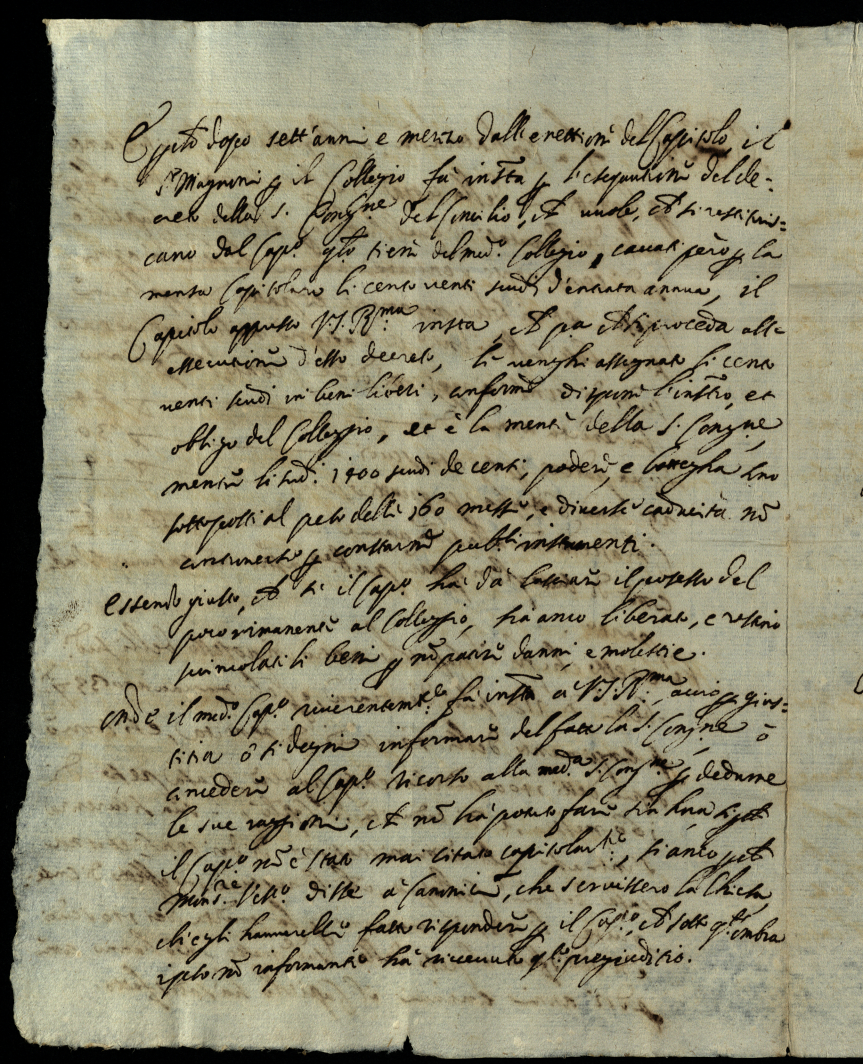 E p̃to dopo sett'anni e mezzo dall'erettioñ del Capitolo, il
Sr. Magnoni p il Collegio fà insta p l'esequutioñ del de=
creto della S. Congne del Concilio, ch vuole, ch si restituis=
cano dal Capo. qto tieñ del medo. Collegio, cavati però p la
mensa Capitolare li cento venti scudi d'entrata annua, il
Capitolo appresso V.S. Rma insta, ch pa ch si proceda all=
essecutioñ d'esso decreto, li venghi assegnato li cento
venti scudi in beni liberi, conforme disponi l'instro, et
obligo del Colleggio, et è la mente della S. Congne,
mentre li sud. 1400 scudi de censi, podere, e bottegha sno
sottoposti al peso delle 160 messe, e diverse caducità nõ
p constarne pubbli instrumenti.
Essendo giusto, ch se il Capo. hà dà lassiare il possesso del
poco rimanente al Colleggio, sia anco liberato, e restino
svincolati li beni p nõ patire danni, e molestie.
onde il medo. Capo. riverentemte. fà insta à V.S. Rma, acciò p gius=
titia ò si degni informare del fatto la S. Congne, ò
concedere al Capo. ricorso alla meda. S. Congne p dedurre
le sue raggioni, ch nõ hà potuto fare sin hora,
il Capo. nõ è stato mai citato capitolarte., si anco
Monsre. Vesco. disse à Canonici, che servissero la Chiesa,
ch'egli haverebbe fatto rispondere p il Capo., ch sotto qta. ombra
ipso nõ informante hà ricevuto qto. pregiuditio.